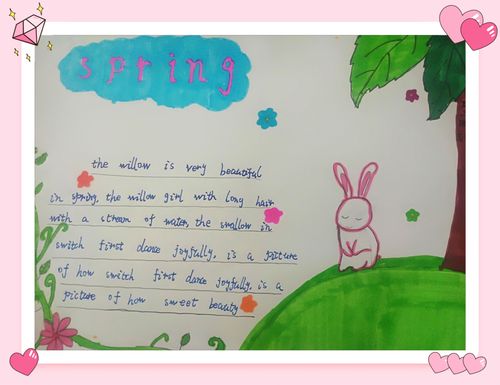 spring
the willow is very beautiful
in spring, the willow girl with long hair
with a stream of water, the swallow in
switch first dance joyfully, is a picture
of how switch first dance joyfully, is a
picture of how sweet beauty